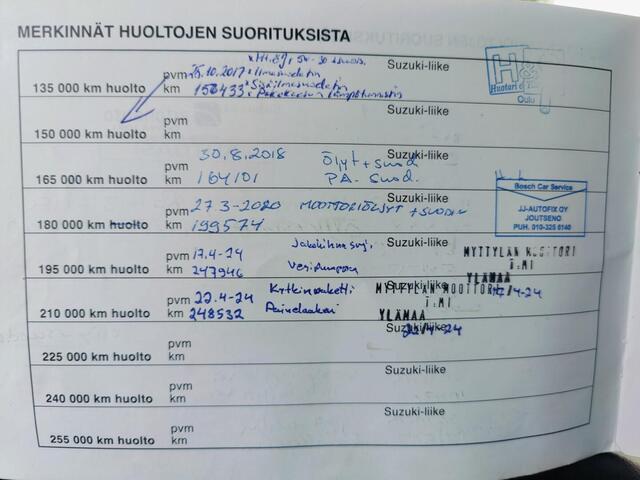 MERKINNÄT HUOLTOJEN SUORITUKSISTA
135 000 km huolto
pvm 15.10.2017
km
Suzuki-liike
Huoturi
Oulu
150 000 km huolto
pvm
km
Suzuki-liike
165 000 km huolto
pvm 30.8.2018 Öljyt + suod
km 164101 P.A. suod.
Suzuki-liike
180 000 km huolto
pvm 27-3-2020 MOOTTORIÖLJYT + SUODIN
km 199574
Suzuki-liike
Bosch Car Service
JJ-AUTOFIX OY
JOUTSENO
PUH. 010-325 6140
195 000 km huolto
pvm 17.4-24 Jakohihna
km 247946 Vesipumppu
Suzuki-liike
MYTTYLÄN MOOTTORI
T:MI
YLÄMAA
17/4-24
210 000 km huolto
pvm 22.4-24 Kytkinpaketti
km 248532 Painelaakeri
Suzuki-liike
MYTTYLÄN MOOTTORI
T:MI
YLÄMAA
22/4-24
225 000 km huolto
pvm
km
Suzuki-liike
240 000 km huolto
pvm
km
Suzuki-liike
255 000 km huolto
pvm
km
Suzuki-liike